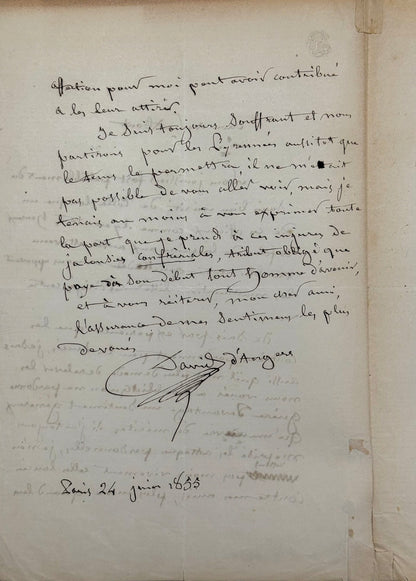 affection pour moi peut avoir contribué
à les leur attirer.
Je suis toujours souffrant et nous
partirons pour les Pyrennées aussitot que
le tems le permettra, il ne m'était
pas possible de vous aller voir, mais je
tenais au moins à vous exprimer toute
la part que je prends à ces injures de
jalousies confraternales, tribut obligé que
paye à son début tout homme d'avenir,
et à vous réiterer, mon cher ami,
l'assurance de mes sentimens les plus
dévoués
David d'Angers
Paris 24 juin 1855